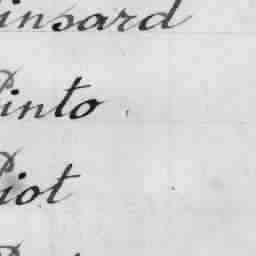 insard
Pinto
Piot